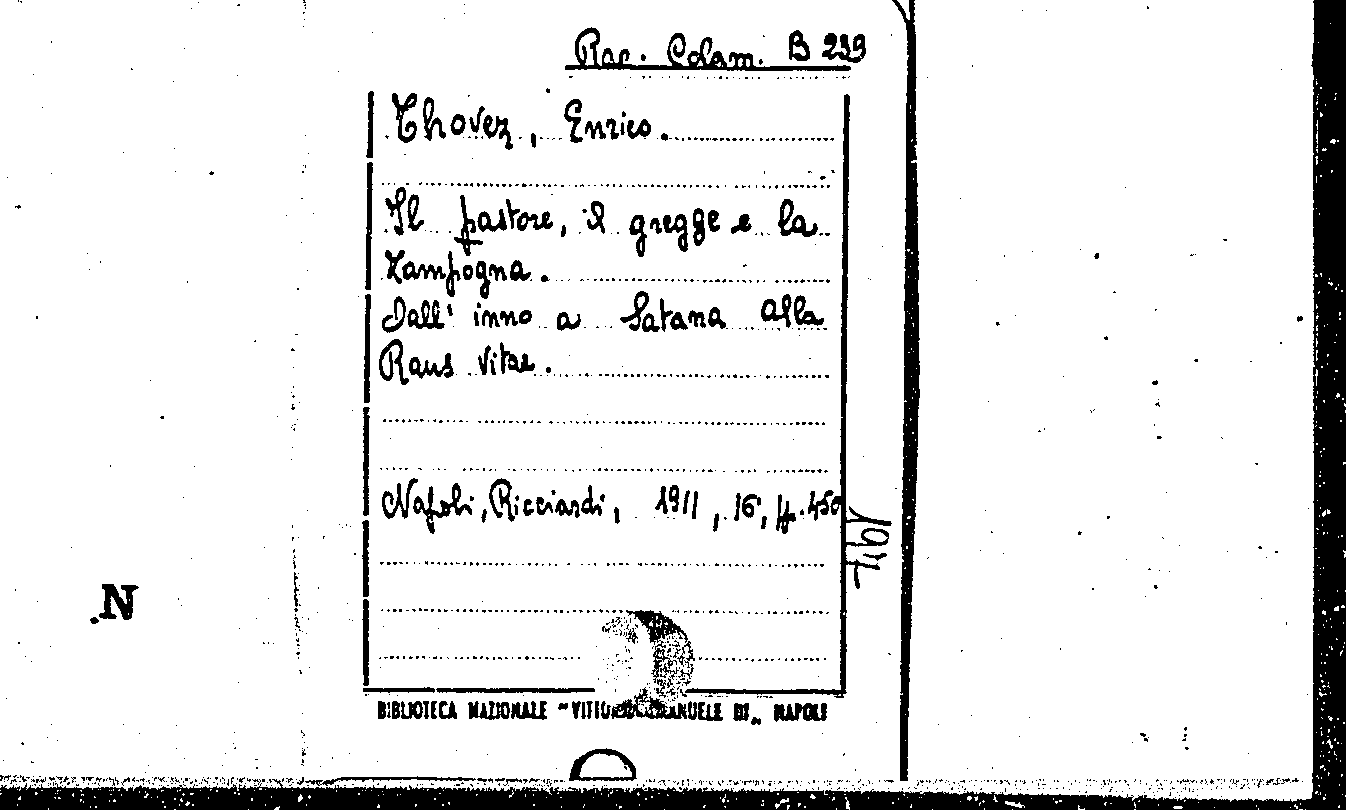 Rac. Colam. B 239
Thovez, Enrico.
Il pastore, il gregge e la
Zampogna.
Dall' inno a Satana alla
Raus Vitae.
Napoli, Ricciardi, 1911, 16, p. 450
N
BIBLIOTECA NAZIONALE "VITTORIO EMANUELE III" NAPOLI